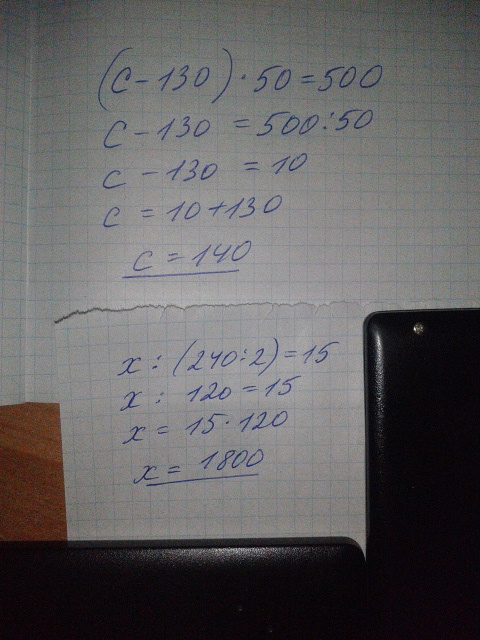 (c - 130) · 50 = 500
c - 130 = 500 : 50
c - 130 = 10
c = 10 + 130
c = 140
x : (240 : 2) = 15
x : 120 = 15
x = 15 · 120
x = 1800